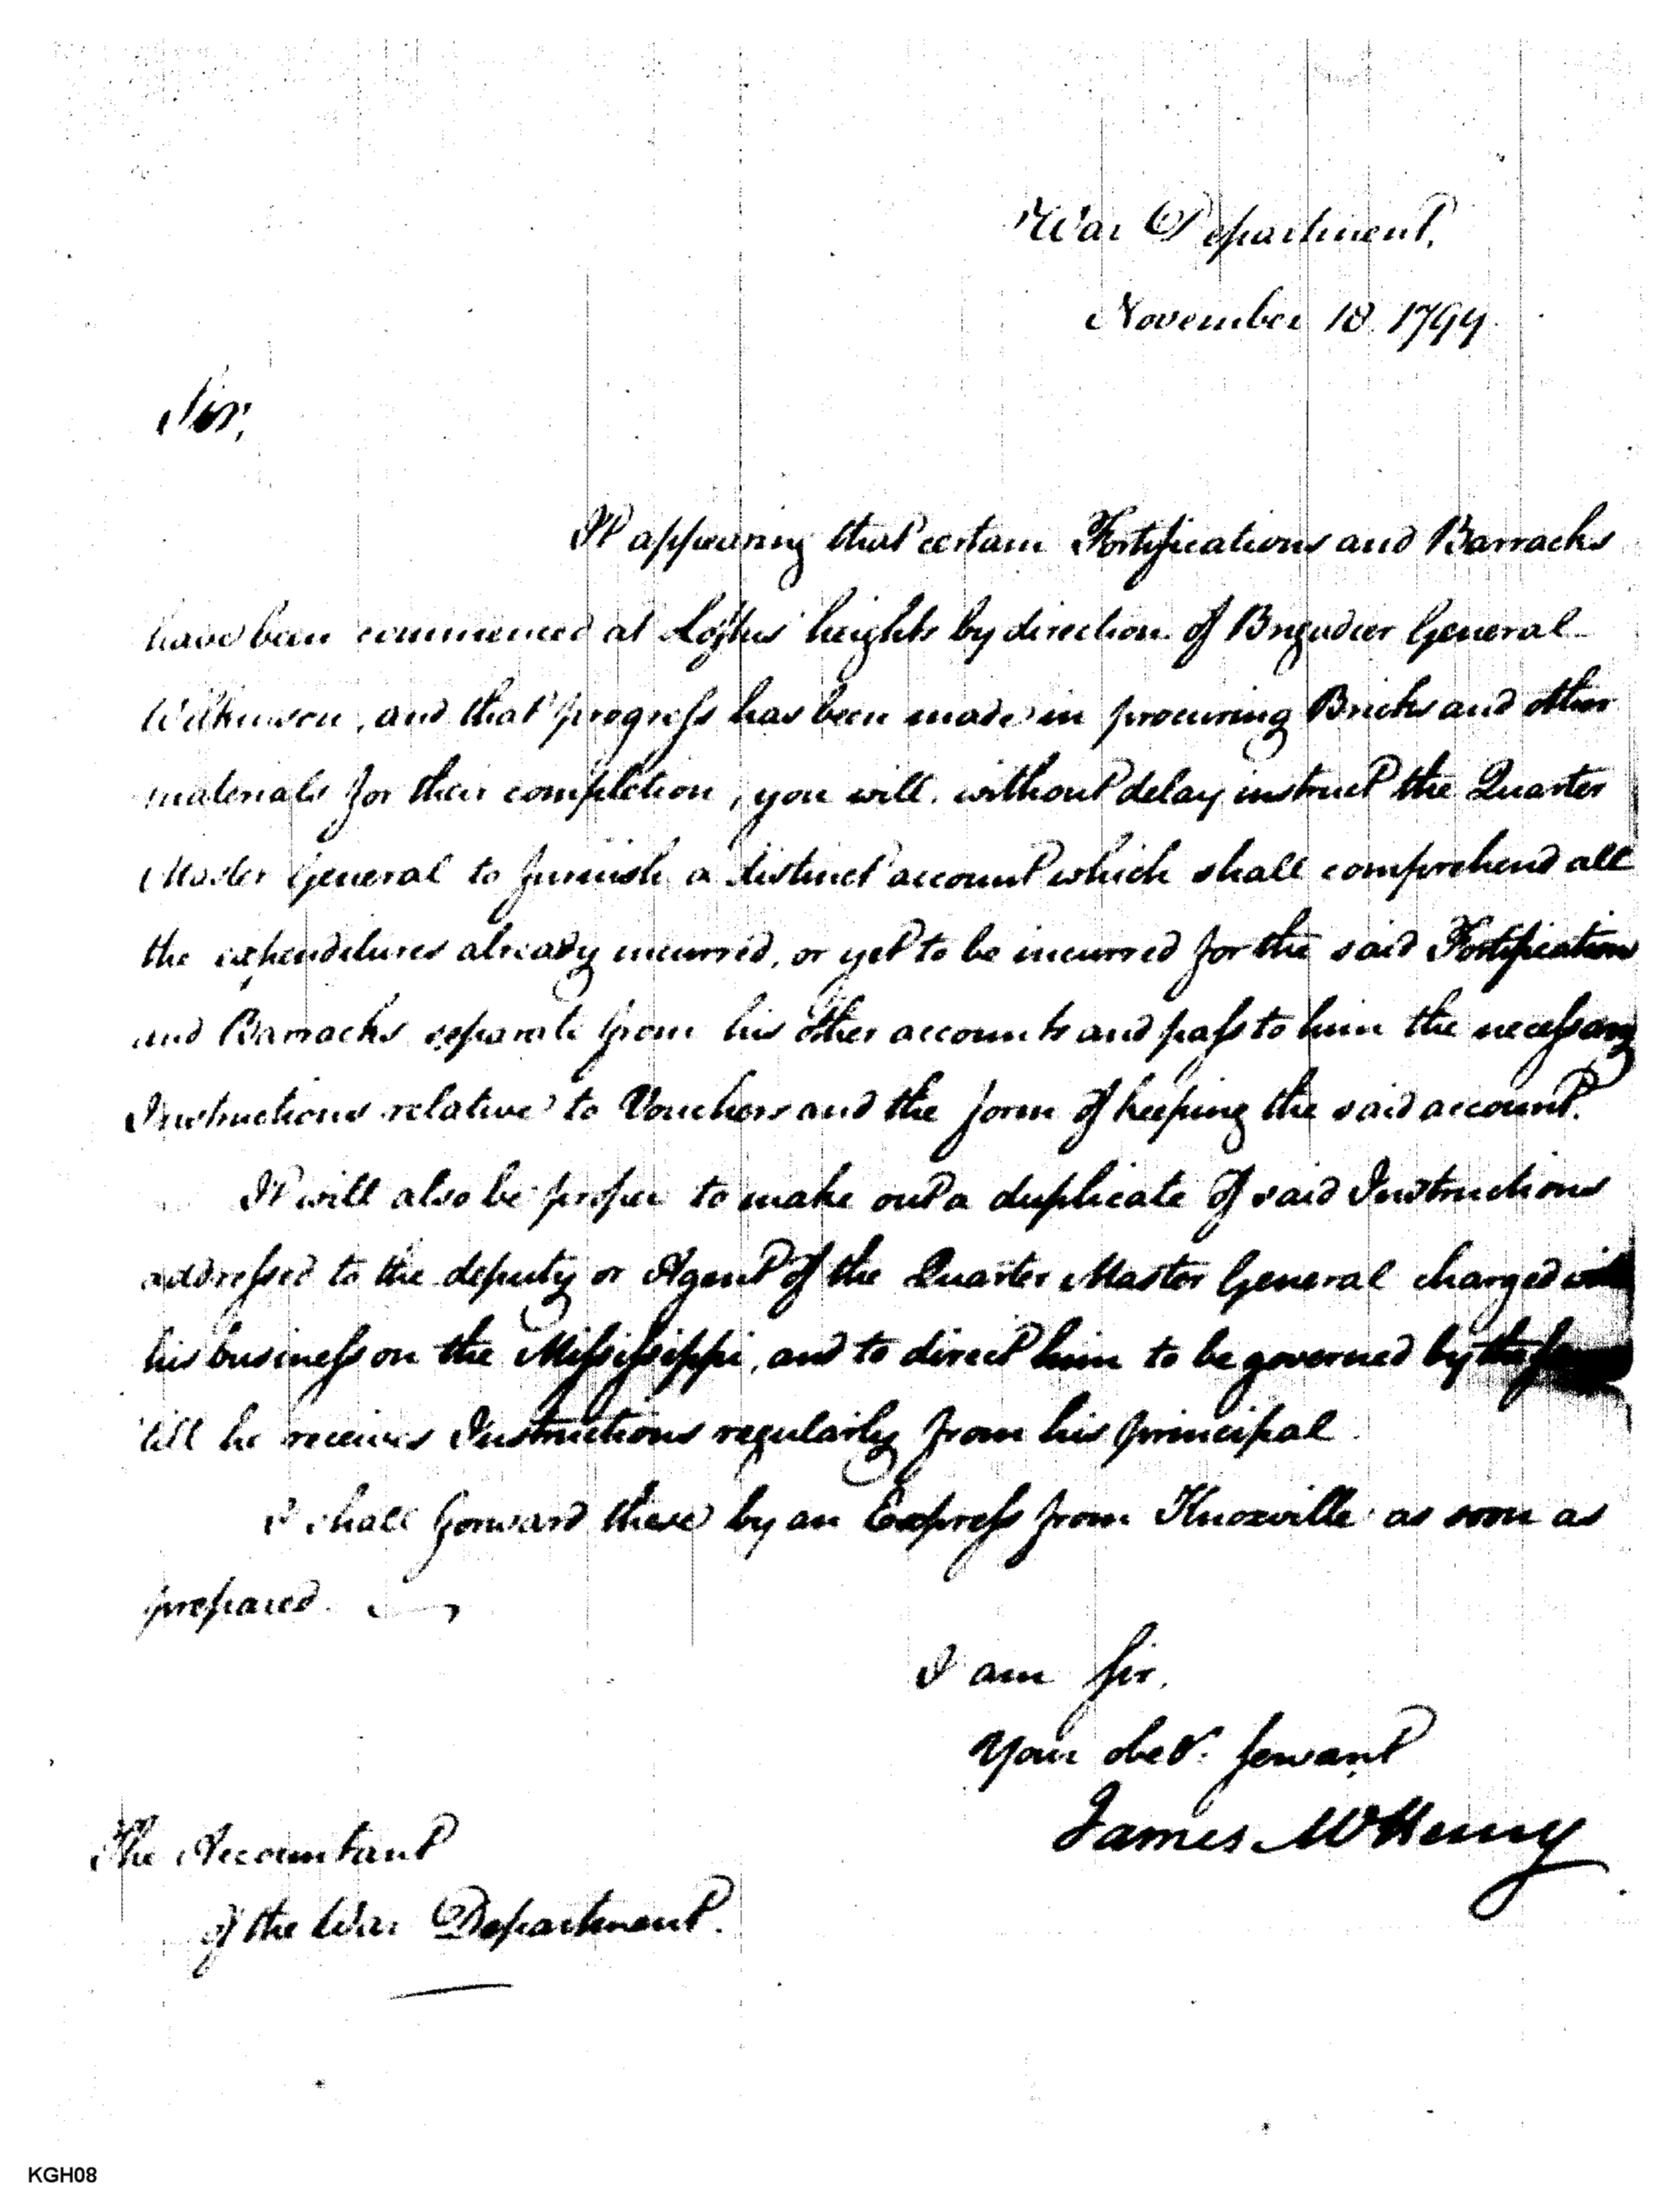 War Department,
November 18. 1799.
Sir,
It appearing that certain Fortifications and Barracks
have been commenced at Loftus' heights by direction of Brigadier General
Wilkinson, and that progress has been made in procuring Bricks and other
materials for their completion, you will, without delay instruct the Quarter
Master General to furnish a distinct account which shall comprehend all
the expenditures already incurred, or yet to be incurred for the said Fortification
and Barracks separate from his other accounts and pass to him the necessary
Instructions relative to Vouchers and the form of keeping the said account.
It will also be proper to make out a duplicate of said Instructions
addressed to the deputy or Agent of the Quarter Master General charged with
his business on the Mississippi, and to direct him to be governed by
till he receives Instructions regularly from his principal.
I shall forward these by an Express from Knoxville as soon as
prepared.
I am Sir,
Your obet. Servant
James McHenry
The Accountant
of the War Department.
KGH08